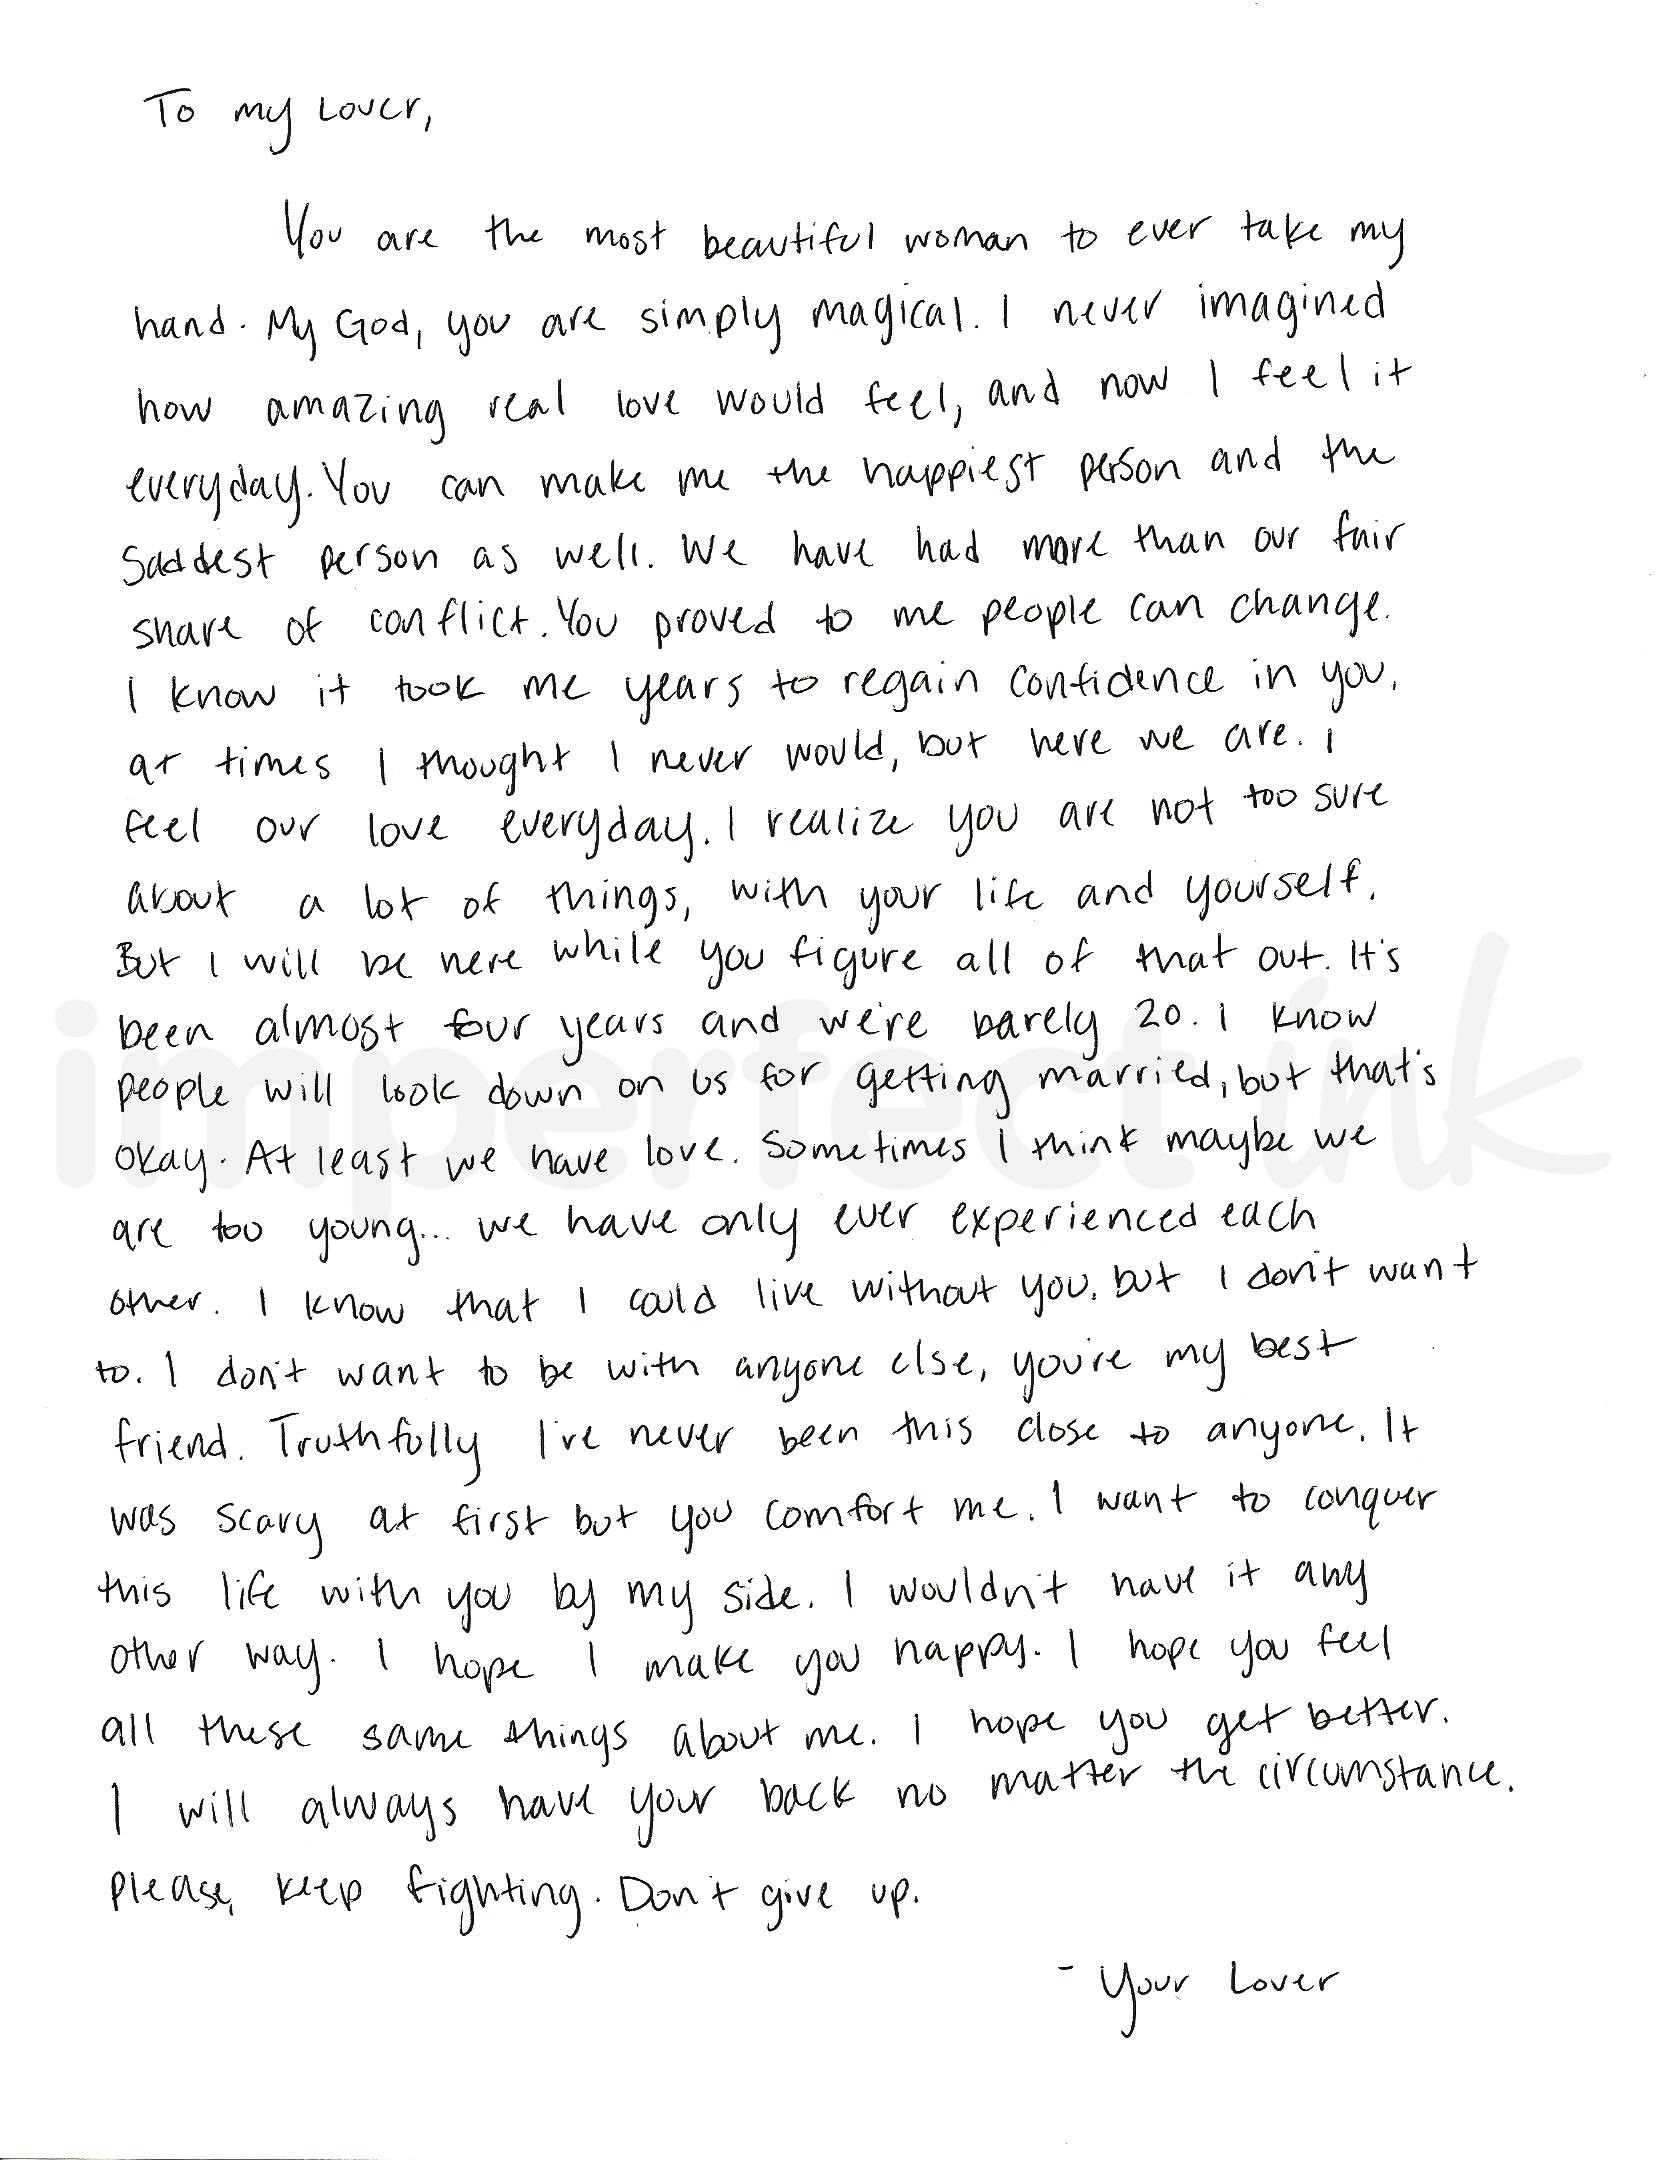 To my Lover,
You are the most beautiful woman to ever take my
hand. My God, you are simply magical. I never imagined
how amazing real love would feel, and now I feel it
everyday. You can make me the happiest person and the
saddest person as well. We have had more than our fair
share of conflict. You proved to me people can change.
I know it took me years to regain confidence in you,
at times I thought I never would, but here we are. I
feel our love everyday. I realize you are not too sure
about a lot of things, with your life and yourself.
But I will be here while you figure all of that out. It's
been almost four years and we're barely 20. I know
people will look down on us for getting married, but that's
okay. At least we have love. Sometimes I think maybe we
are too young... we have only ever experienced each
other. I know that I could live without you, but I don't want
to. I don't want to be with anyone else, you're my best
friend. Truthfully I've never been this close to anyone. It
was scary at first but you comfort me. I want to conquer
this life with you by my side. I wouldn't have it any
other way. I hope I make you happy. I hope you feel
all these same things about me. I hope you get better.
I will always have your back no matter the circumstance.
Please, keep fighting. Don't give up.
- Your Lover
imperfect ink